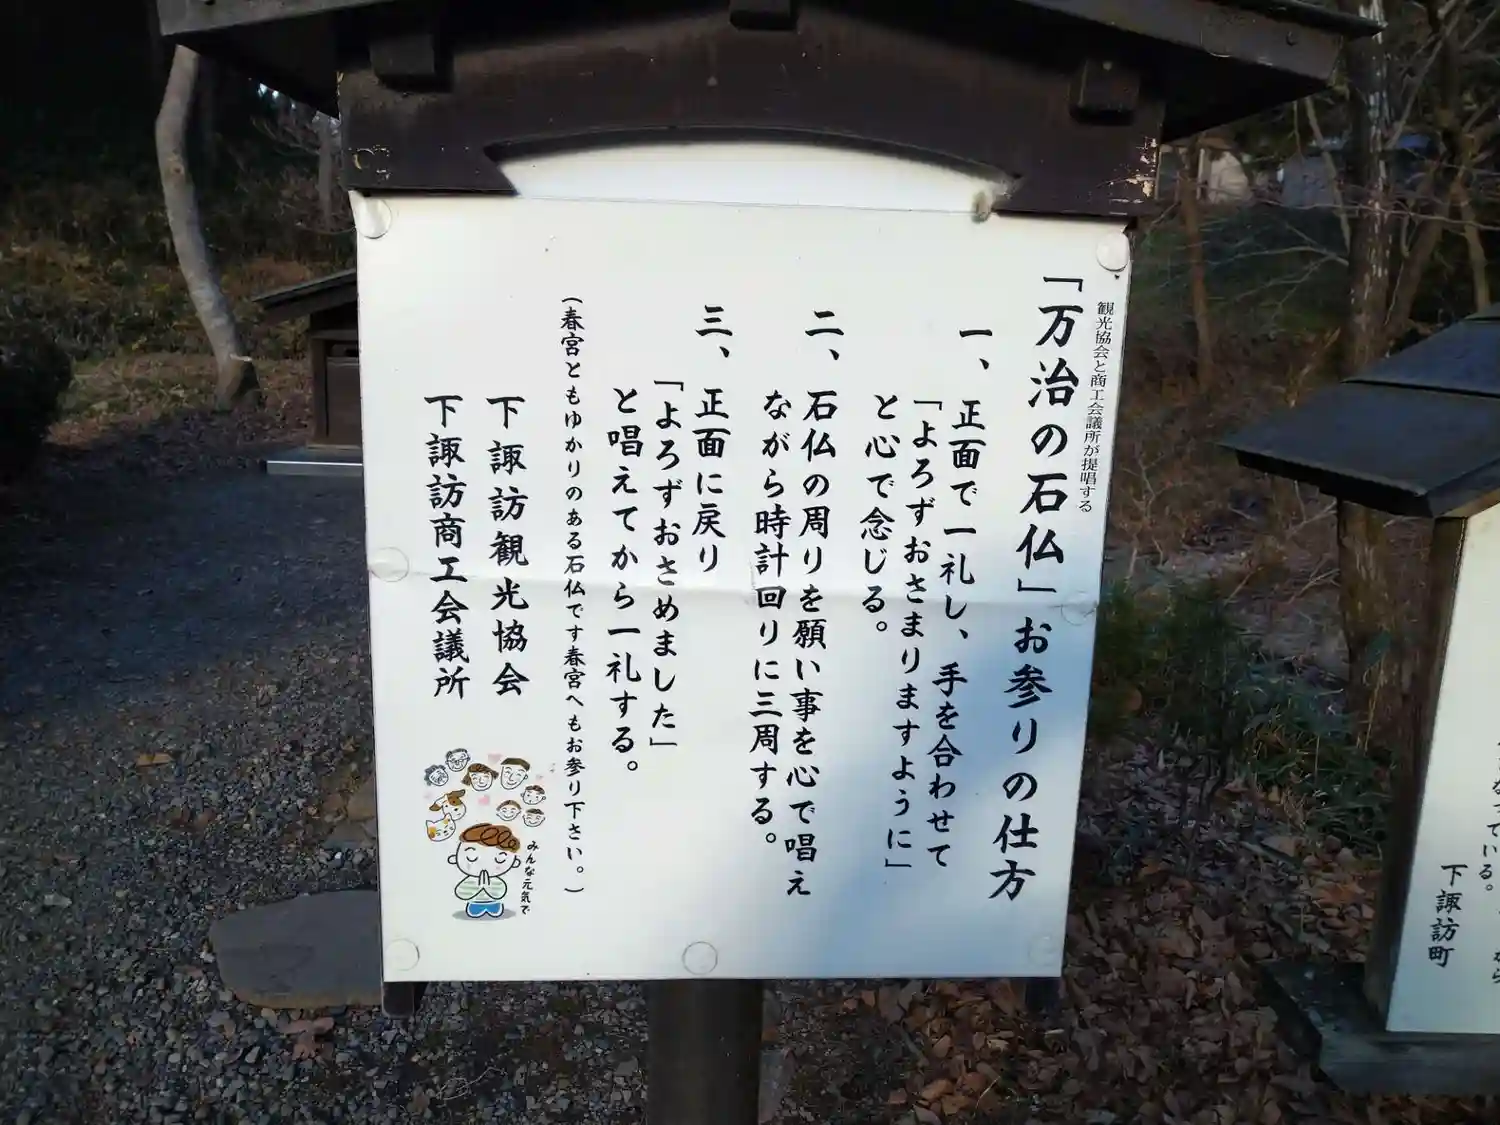 観光協会と商工会議所が提唱する
「万治の石仏」お参りの仕方
一、正面で一礼し、手を合わせて
「よろずおさまりますように」
と心で念じる。
二、石仏の周りを願い事を心で唱え
ながら時計回りに三周する。
三、正面に戻り
「よろずおさめました」
と唱えてから一礼する。
(春宮ともゆかりのある石仏です春宮へもお参り下さい。)
下諏訪観光協会
下諏訪商工会議所
みんな元気で
なっている。
下諏訪町